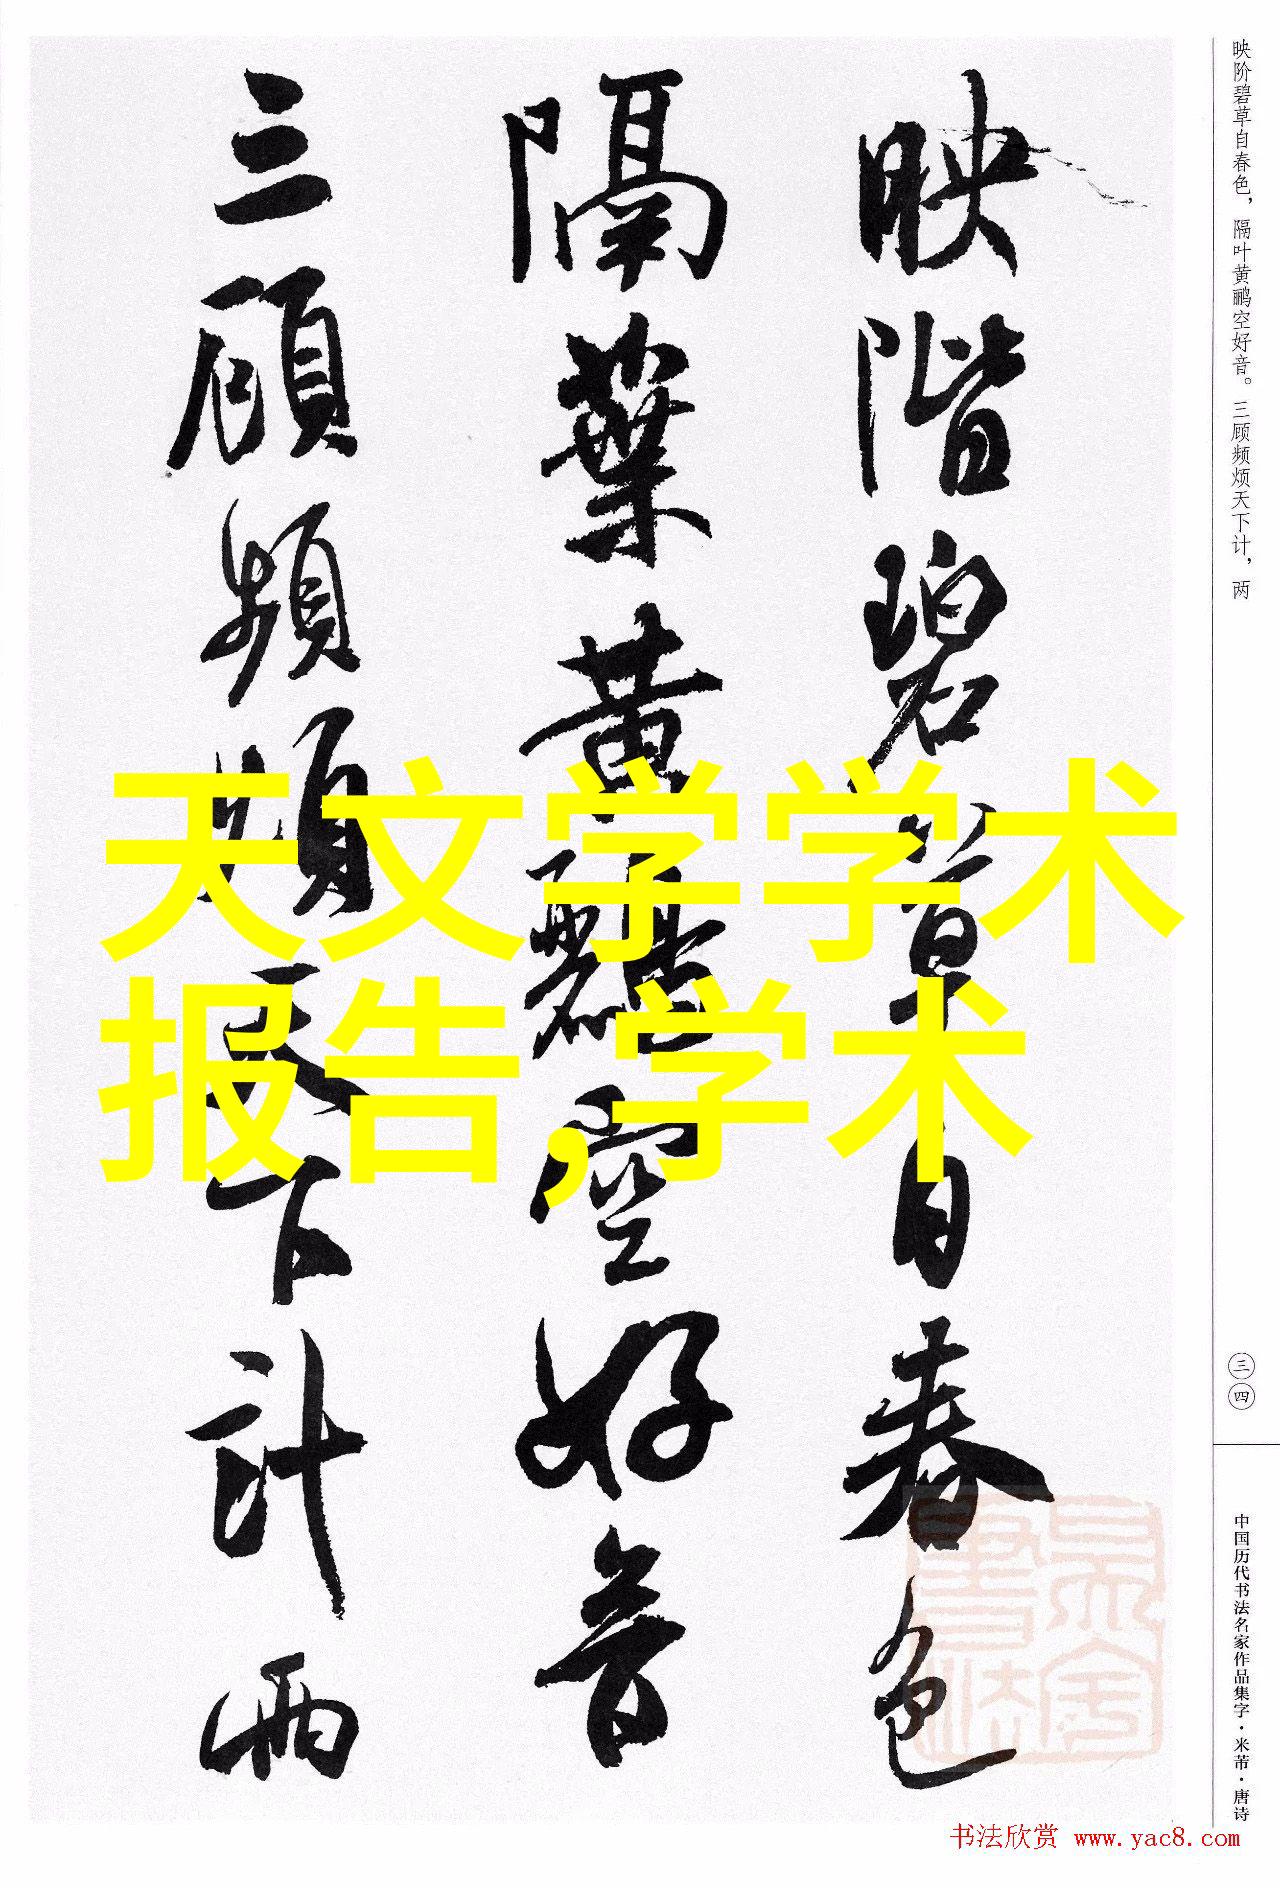 映階碧草自春色
隔葉黃鸝空好音
三顧頻煩天下計兩
天文学学术
报告,学术
映阶碧草自春色，隔叶黄鹂空好音。三顾频烦天下计，两
三四
中国历代书法名家作品集字·米芾·唐诗
书法欣赏 www.yac8.com